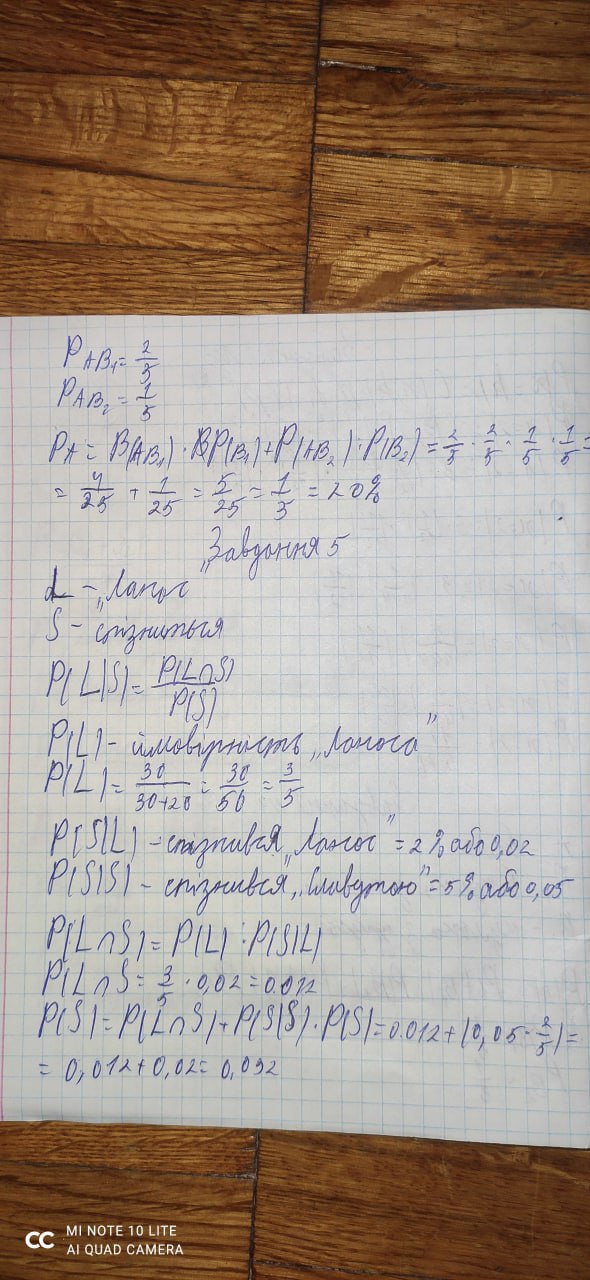 P AB₁ = 2/5
P AB₂ = 1/5
PA = B(AB₁) · BP(B₁) + P(AB₂) · P(B₂) = 2/5 · 2/5 · 1/5 · 1/5 =
= 4/25 + 1/25 = 5/25 = 1/5 = 20%
„Завдання 5
L – „Ланос
S – спізниться
P(L|S) = P(L∩S)/P(S)
P(L) – ймовірність „Ланоса"
P(L) = 30/30+20 = 30/50 = 3/5
P(S|L) – спізнився „Ланос" = 2% або 0,02
P(S|S) – спізнився „Славутою" = 5% або 0,05
P(L∩S) = P(L) · P(S|L)
P(L∩S = 3/5 · 0,02 = 0.012
P(S) = P(L∩S) + P(S|S) · P(S) = 0.012 + (0,05 · 2/5) =
= 0,012 + 0,02 = 0,032
MI NOTE 10 LITE
AI QUAD CAMERA